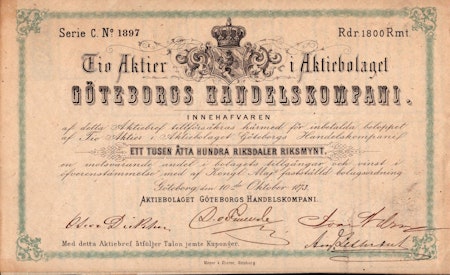 Serie C. Nº 1897
Rdr 1800 Rmt
Tio Aktier i Aktiebolaget
GÖTEBORGS HANDELSKOMPANI.
INNEHAFVAREN
af detta Aktiebref tillförsäkras härmed för inbetalda beloppet
af Tio Aktier i Aktiebolaget Göteborgs Handelskompani
ETT TUSEN ÅTTA HUNDRA RIKSDALER RIKSMYNT.
en motsvarande andel i bolagets tillgångar och vinst i
öfverensstämmelse med af Kongl. Majt fastställd bolagsordning
Göteborg den 10de Oktober 1873.
AKTIEBOLAGET GÖTEBORGS HANDELSKOMPANI.
Med detta Aktiebref åtföljer Talon jemte Kuponger.
Göteborg.